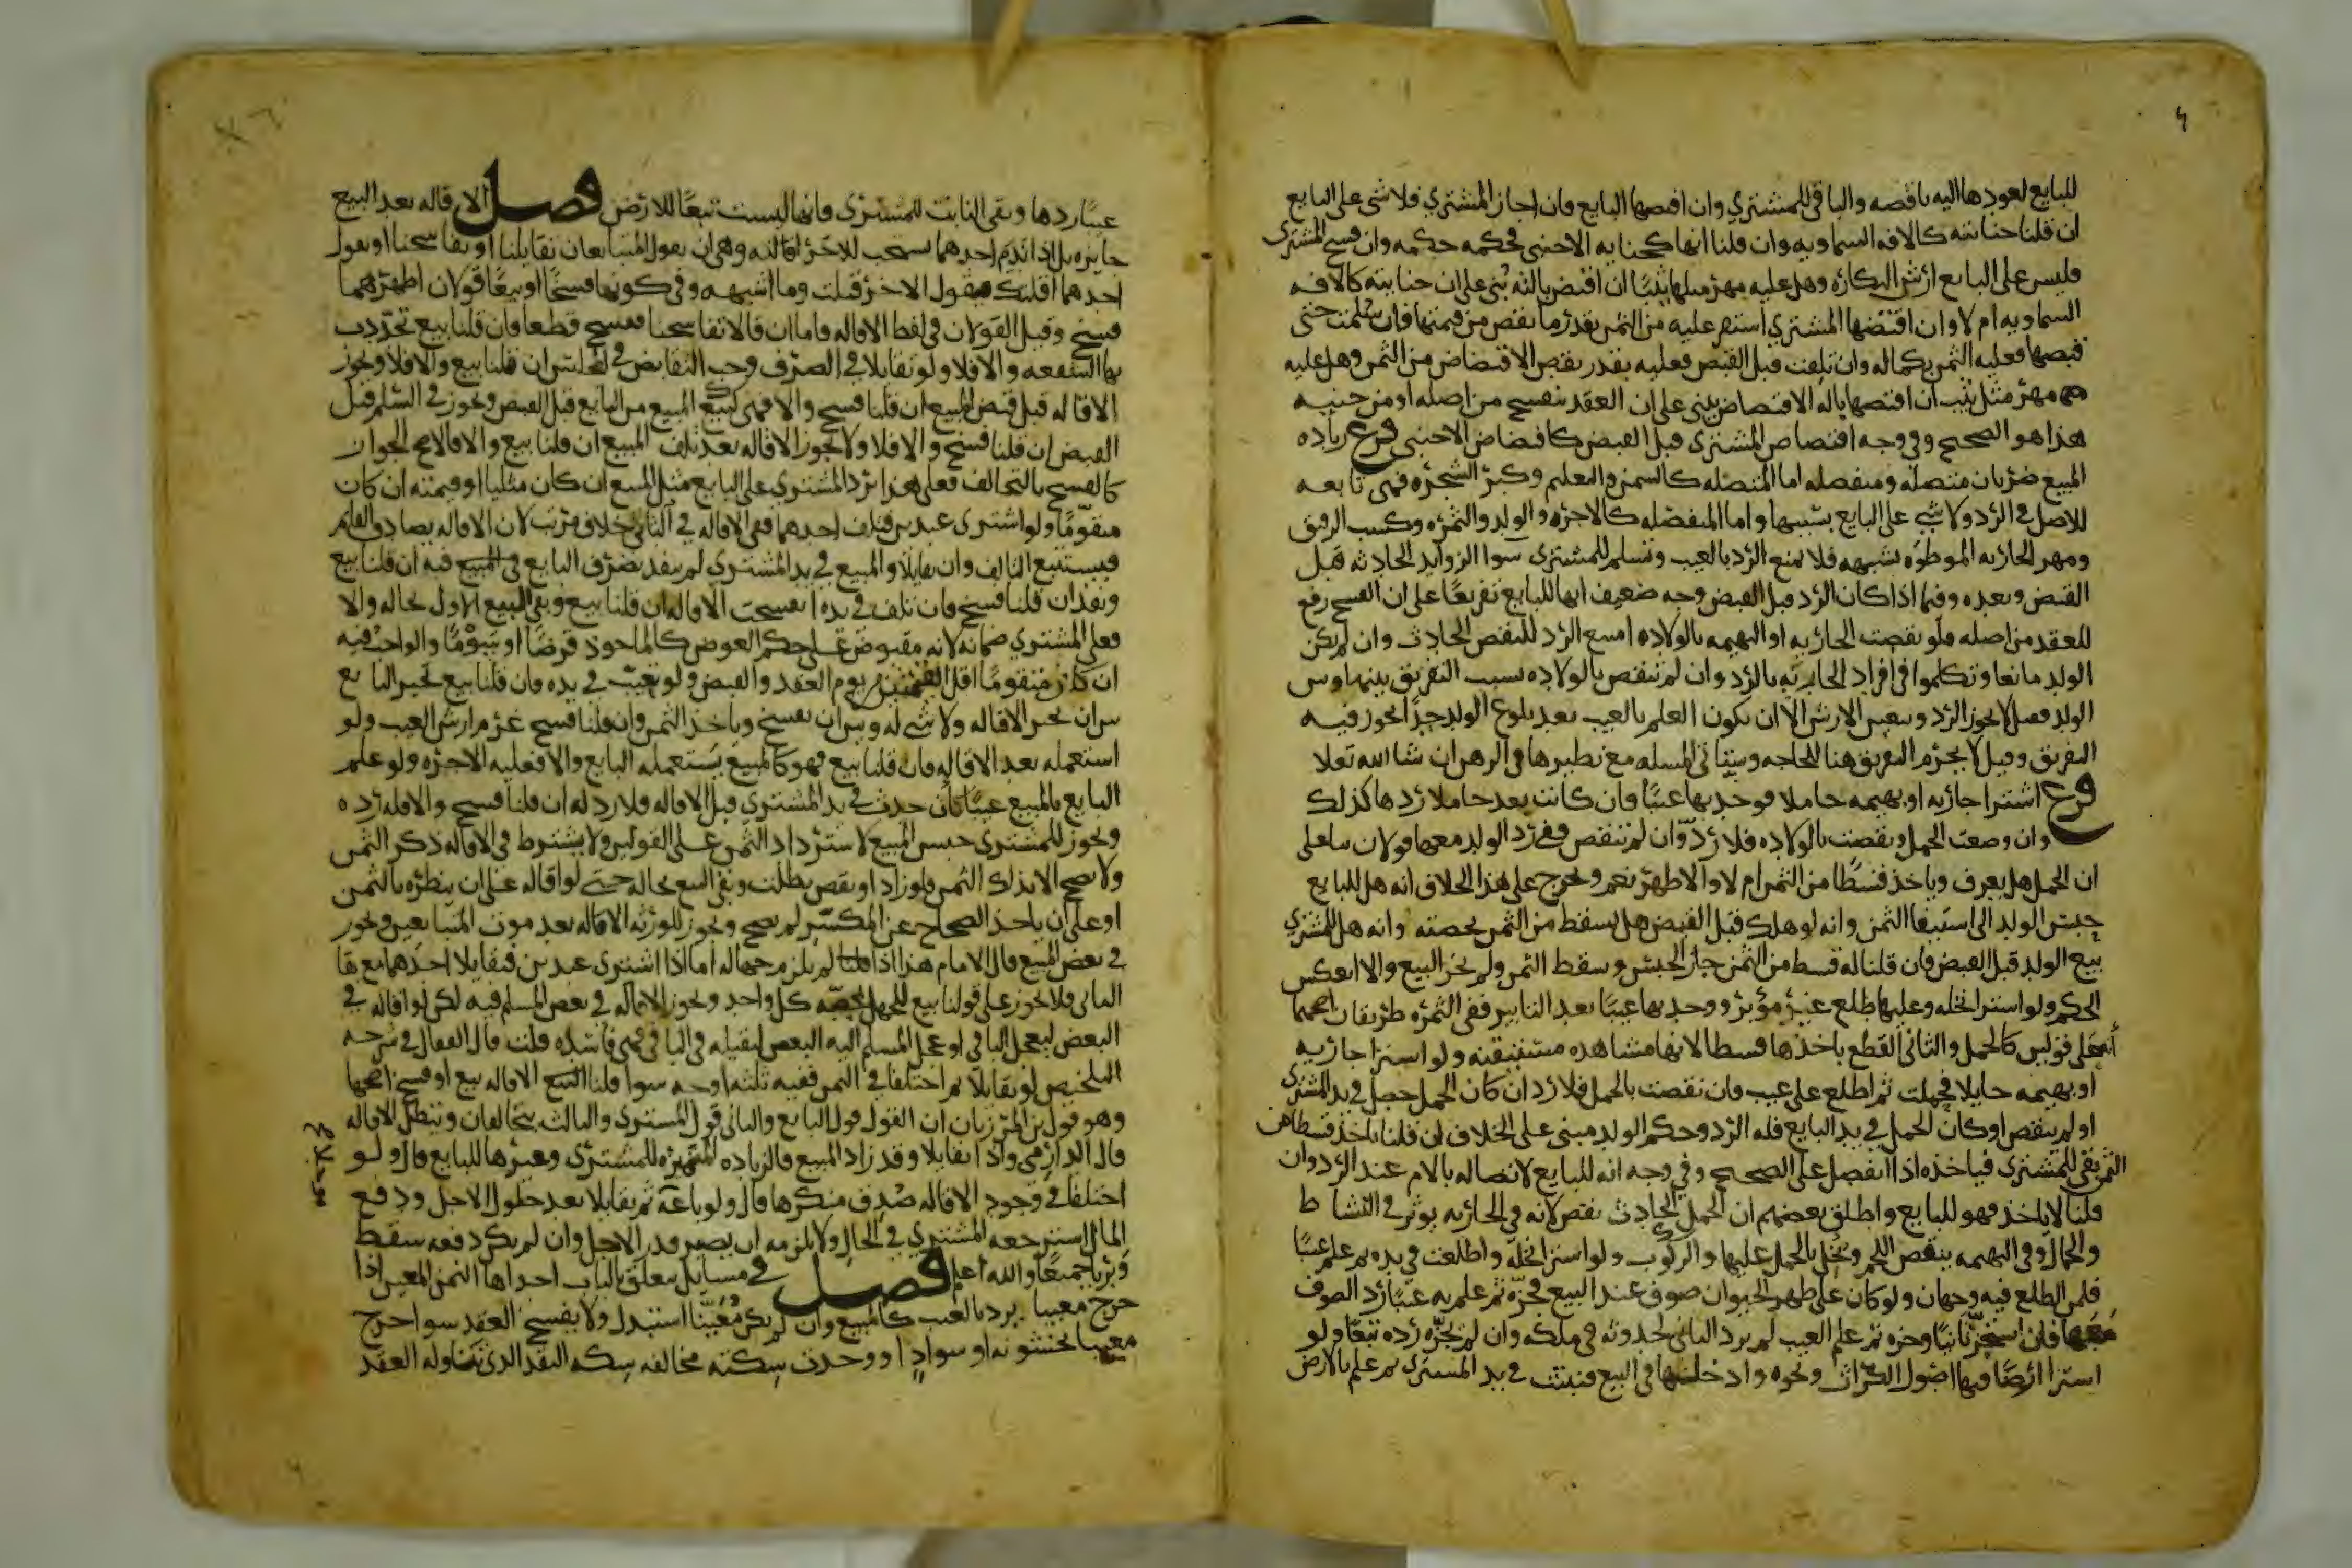 للبايع لعودها اليه ناقصه والباقي للمشتري وان افتضها البايع فان اجاز المشتري فلا شي على البايع
ان قلنا جنايته كالافه السماويه وان قلنا انها كجنايه الاجنبي فحكمه حكمه وان فسخ المشترى
فليس على البايع ارش البكاره وهل عليه مهر مثلها ثيبا ان افتض بالته بني على ان جنايته كالافه
السماويه ام لا وان افتضها المشتري استقر عليه من الثمن بقدر ما نقص من قيمتها فان سلمت حتى
قبضها فعليه الثمن بكماله وان تلفت قبل القبض فعليه بقدر نقص الاقتضاض من الثمن وهل عليه
مهر مثل ثيب ان افتضها باله الاقتضاض يبنى على ان العقد ينفسخ من اصله او من حينه
هذا هو الصحيح وفي وجه اقتضاض المشترى قبل القبض كاقتضاض الاجنبى فرع زياده
المبيع ضربان متصله ومنفصله اما المتصله كالسمن والتعلم وكبر الشجره فهى تابعه
للاصل في الرد ولا شي على البايع بسببها واما المنفصله كالاجره والولد والثمره وكسب الرقيق
ومهر الجاريه الموطوه بشبهه فلا يمنع الرد بالعيب وتسلم للمشترى سوا الزوايد الحادثه قبل
القبض وبعده وفيما اذا كان الرد قبل القبض وجه ضعيف انها للبايع تفريعا على ان الفسخ رفع
للعقد من اصله فلو نقصت الجاريه او البهيمه بالولاده امتنع الرد للنقص الحادث وان لم يكن
الولد مانعا وتكلموا في افراد الجاريه بالرد وان لم تنقص بالولاده بسبب التفريق بينها وبين
الولد فقيل لا يجوز الرد ويتعين الارش الا ان يكون العلم بالعيب بعد بلوغ الولد حدا يجوز فيه
التفريق وقيل لا يحرم التفريق هنا للحاجه وستاتى المسله مع نظيرها في الرهن ان شا الله تعلا
فرع اشترا جاريه او بهيمه حاملا فوجد بها عيبا فان كانت بعد حاملا ردها كذلك
وان وضعت الحمل ونقصت بالولاده فلا رد وان لم تنقص ففي رد الولد معها قولان بنا على
ان الحمل هل يعرف وياخذ قسطا من الثمن ام لا والاظهر نعم ويخرج على هذا الخلاف انه هل للبايع
حبس الولد الى استيفا الثمن وانه لو هلك قبل القبض هل يسقط من الثمن بحصته وانه هل للمشتري
بيع الولد قبل القبض فان قلنا له قسط من الثمن جاز الحبس وسقط الثمن ولم يجز البيع والا انعكس
الحكم ولو اشترا نخله وعليها طلع غير مؤبر ووجد بها عيبا بعد التابير ففي الثمره طريقان اصحهما
انه على قولين كالحمل والثانى القطع باخذها قسطا لانها مشاهده مستيقنه ولو اشترا جاريه
او بهيمه حايلا فحملت ثم اطلع على عيب فان نقصت بالحمل فلا رد ان كان الحمل حصل في يد المشتري
او لم ينقص او كان الحمل في يد البايع فله الرد وحكم الولد مبنى على الخلاف ان قلنا ياخذ قسطا من
الثمن بقى للمشترى فياخذه اذا انفصل على الصحيح وفي وجه انه للبايع لاتصاله بالام عند الرد وان
قلنا لا ياخذ فهو للبايع واطلق بعضهم ان الحمل الحادث نقص لانه في الجاريه يوثر في النشاط
والجمال وفي البهيمه ينقص اللحم ويخل بالحمل عليها والركوب ولو اشترا نخله واطلعت في يده ثم علم عيبا
فلمن الطلع فيه وجهان ولو كان على ظهر الحيوان صوف عند البيع فجزه ثم علم به عيبا رد الصوف
معها فان استجز ثانيا وجزه ثم علم العيب لم يرد الثانى لحدوثه في ملكه وان لم يجزه رده تبعا ولو
اشترا ارضا فيها اصول الكراث ونحوه وادخلناها في البيع فنبتت في يد المشترى ثم علم بالارض
عيبا ردها وبقى النابت للمشترى فانها ليست تبعا للارض فصل الاقاله بعد البيع
جايزه بل اذا ندم احدهما يستحب للاخر اقالته وهى ان يقول المتبايعان تقايلنا او تفاسخنا او يقول
احدهما اقلتك فيقول الاخر قبلت وما اشبهه وفي كونها فسخا او بيعا قولان اظهرهما
فسخ وقيل القولان في لفظ الاقاله فاما ان قالا تفاسخنا ففسخ قطعا فان قلنا بيع تجددت
بها الشفعه والا فلا ولو تقايلا في الصرف وجب التقابض في المجلس ان قلنا بيع والا فلا ويجوز
الاقاله قبل قبض المبيع ان قلنا فسخ والا فهى كبيع المبيع من البايع قبل القبض ويجوز في السلم قبل
القبض ان قلنا فسخ والا فلا ولا يجوز الاقاله بعد تلف المبيع ان قلنا بيع والا فالاصح الجواز
كالفسخ بالتحالف فعلى هذا يرد المشتري على البايع مثل المبيع ان كان مثليا او قيمته ان كان
متقوما ولو اشترى عبدين فتلف احدهما ففي الاقاله في الثاني خلاف مرتب لان الاقاله تصادف القايم
فيستتبع التالف وان تقايلا والمبيع في يد المشترى لم ينفذ تصرف البايع في المبيع فيه ان قلنا بيع
ونفذ ان قلنا فسخ فان تلف في يده انفسخت الاقاله ان قلنا بيع وبقى البيع الاول بحاله والا
فعلى المشتري ضمانه لانه مقبوض على حكم العوض كالماخوذ قرضا او سوما والواجب فيه
ان كان متقوما اقل القيمتين من يوم العقد والقبض ولو تعيب في يده فان قلنا بيع تخير البايع
بين ان يجيز الاقاله ولا شي له وبين ان يفسخ وياخذ الثمن وان قلنا فسخ غرم ارش العيب ولو
استعمله بعد الاقاله فان قلنا بيع فهو كالمبيع يستعمله البايع والا فعليه الاجره ولو علم
البايع بالمبيع عيبا كان حدث في يد المشتري قبل الاقاله فلا رد له ان قلنا فسخ والا فله رده
ويجوز للمشترى حبس المبيع لاسترداد الثمن على القولين ولا يشترط في الاقاله ذكر الثمن
ولا يصح الا بذلك الثمن فلو زاد او نقص بطلت وبقى البيع بحاله حتى لو اقاله على ان ينظره بالثمن
او على ان ياخذ الصحاح عن المكسر لم يصح ويجوز للورثه الاقاله بعد موت المتبايعين ويجوز
في بعض المبيع قال الامام هذا اذا لم يلزم جهاله اما اذا اشترى عبدين فتقايلا احدهما مع بقا
الثانى فلا يجوز على قولنا بيع للجهل بحصه كل واحد ويجوز الاقاله في بعض المسلم فيه لكن لو اقاله في
البعض ليعجل الباقي او عجل المسلم اليه البعض ليقيله في الباقي فهى فاسده قلت قال القفال في شرحه
التلخيص لو تقايلا ثم اختلفا في الثمن ففيه ثلثه اوجه سوا قلنا الاقاله بيع او فسخ اصحها
وهو قول بن المرزبان ان القول قول البايع والثانى قول المشترى والثالث يتحالفان وتبطل الاقاله
قال الدارمى واذا تقايلا وقد زاد المبيع فالزياده المتميزه للمشترى وغيرها للبايع قال ولو
اختلفا في وجود الاقاله صدق منكرها قال ولو باعه ثم تقايلا بعد حلول الاجل ودفع
المال استرجعه المشتري في الحال ولا يلزمه ان يصبر قدر الاجل وان لم يكن دفعه سقط
وبريا جميعا والله اعلم فصل في مسايل تتعلق بالباب احداها الثمن المعين اذا
خرج معيبا يرد بالعيب كالمبيع وان لم يكن معينا استبدل ولا يفسخ العقد سوا خرج
معيبا بخشونه او سواد او وجدت سكته مخالفه سكه النقد الذى تناوله العقد